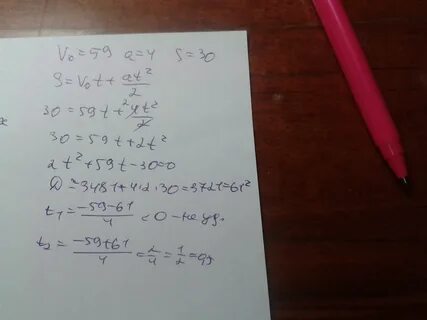 V₀ = 59 a = 4 S = 30
S = V₀t + at²/2
30 = 59t + ²4t²/2
30 = 59t + 2t²
2t² + 59t - 30 = 0
D = 3481 + 4·2·30 = 3721 = 61²
t₁ = -59-61/4 < 0 - не уд.
t₂ = -59+61/4 = 2/4 = 1/2 = 0,5